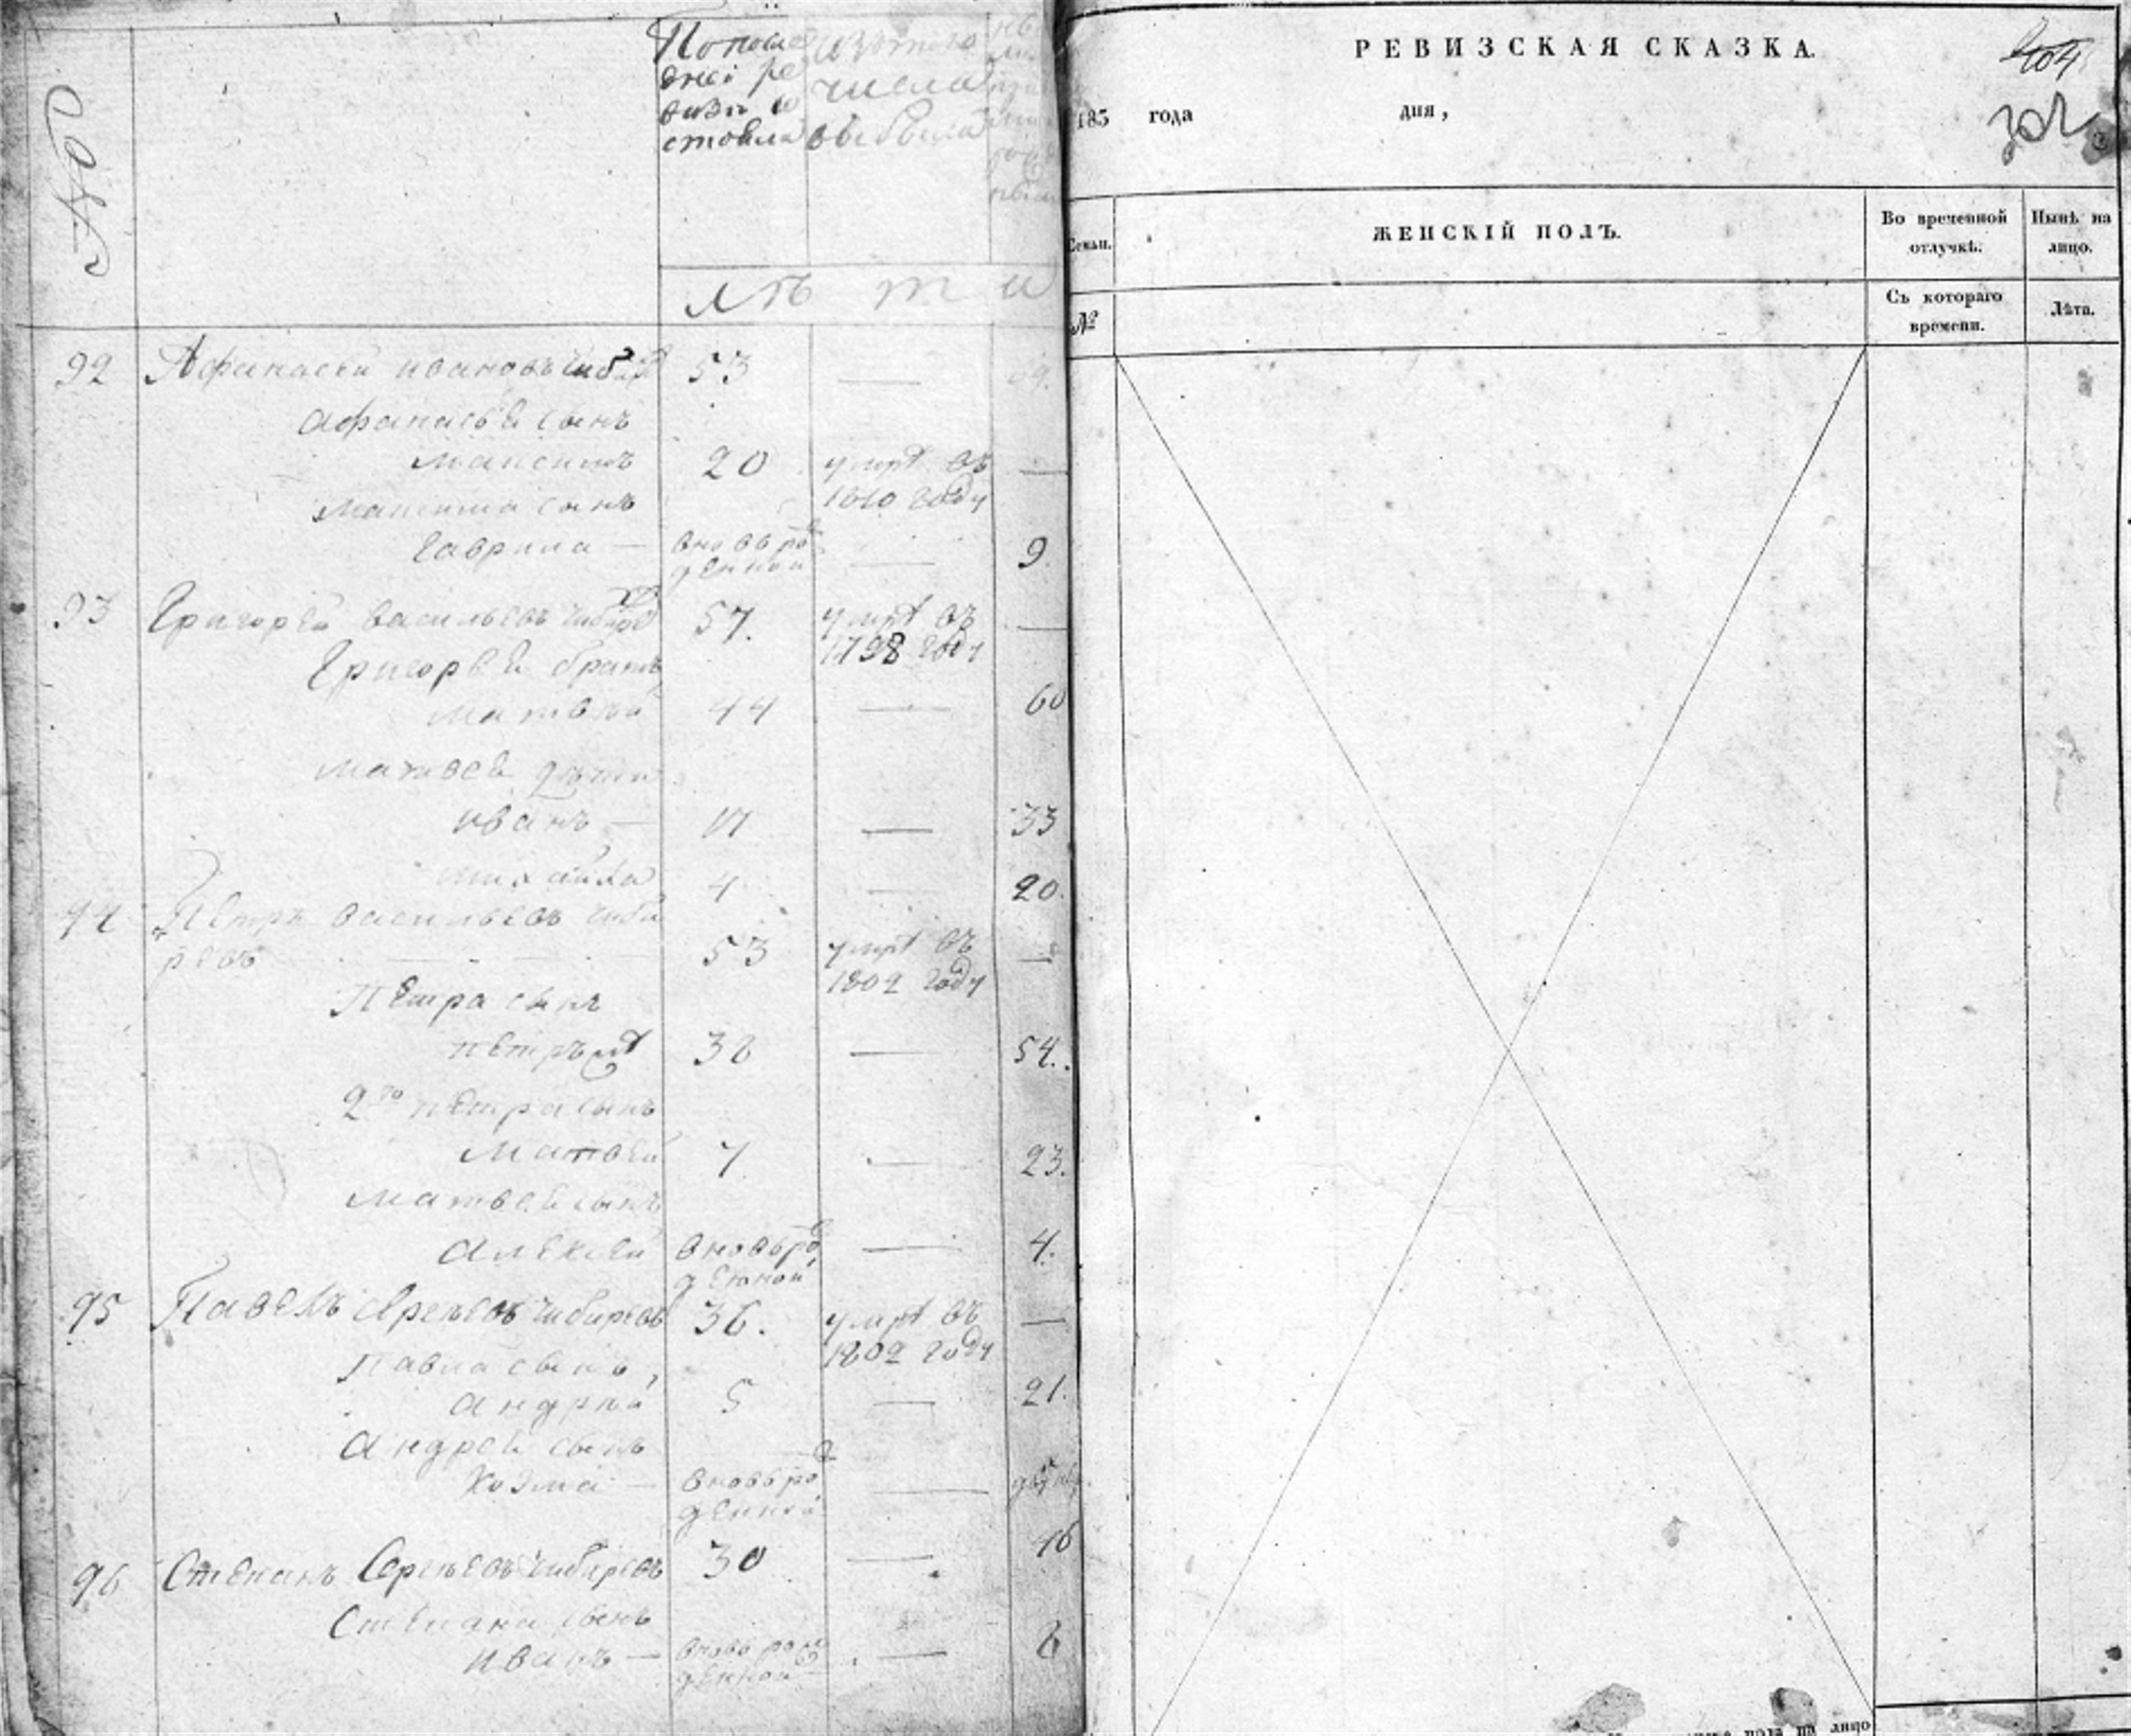 №
Попосле
дней ре
визи со
стояла
изтого
числа
выбыла
лѣта
92 Афанасей ивановъ чибирев 53 —
Афанасьй сынъ
максимъ 20 умре въ —
1810 году
Максима сынъ
Гаврила — вновьрож
денной — 9.
93 Григорей васильевъ чибирев 57. умре въ —
1798 году
Григорьй братъ
матвѣй 44 — 60
матвей дѣти
иванъ — 17 — 33
михайла 4 — 20.
94 Петръ васильевъ чиби
ревъ 53 умре въ —
1802 году
Петра сынъ
петръ 38 — 54.
2го петра сынъ
Матвей 7 — 23.
матвей сынъ
алексей вновьрож — 4.
денной
95 Павелъ Сергѣевъ чибиревъ 36. умре въ —
1802 году
павла сынъ,
андрѣй 5 — 21.
андрей сынъ
козма — вновьрож —
денной
96 Степанъ Сергѣевъ чибиревъ 30 — 46
Степана сынъ
иванъ — вновь рож — 8
денной
РЕВИЗСКАЯ СКАЗКА.
204
302
185 года дня,
Семьи. ЖЕНСКІЙ ПОЛЪ. Во временной
отлучкѣ. Нынѣ на
лицо.
№ Съ котораго
времени. Лѣта.
пола на лицо